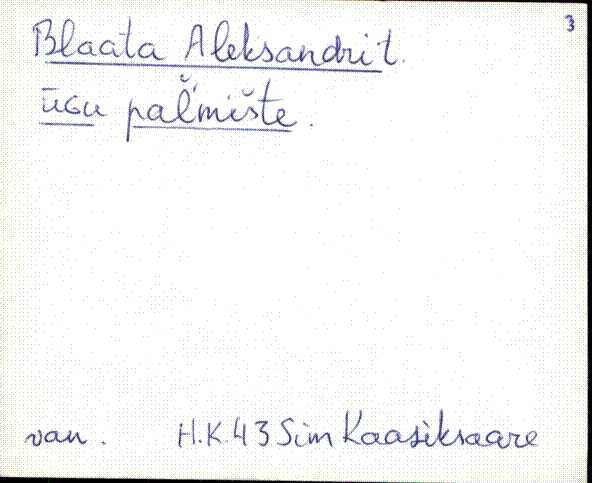 3
Blaata Aleksandrit.
ūGu paľmište.
van. H.K. 43 Sim Kaasiksaare